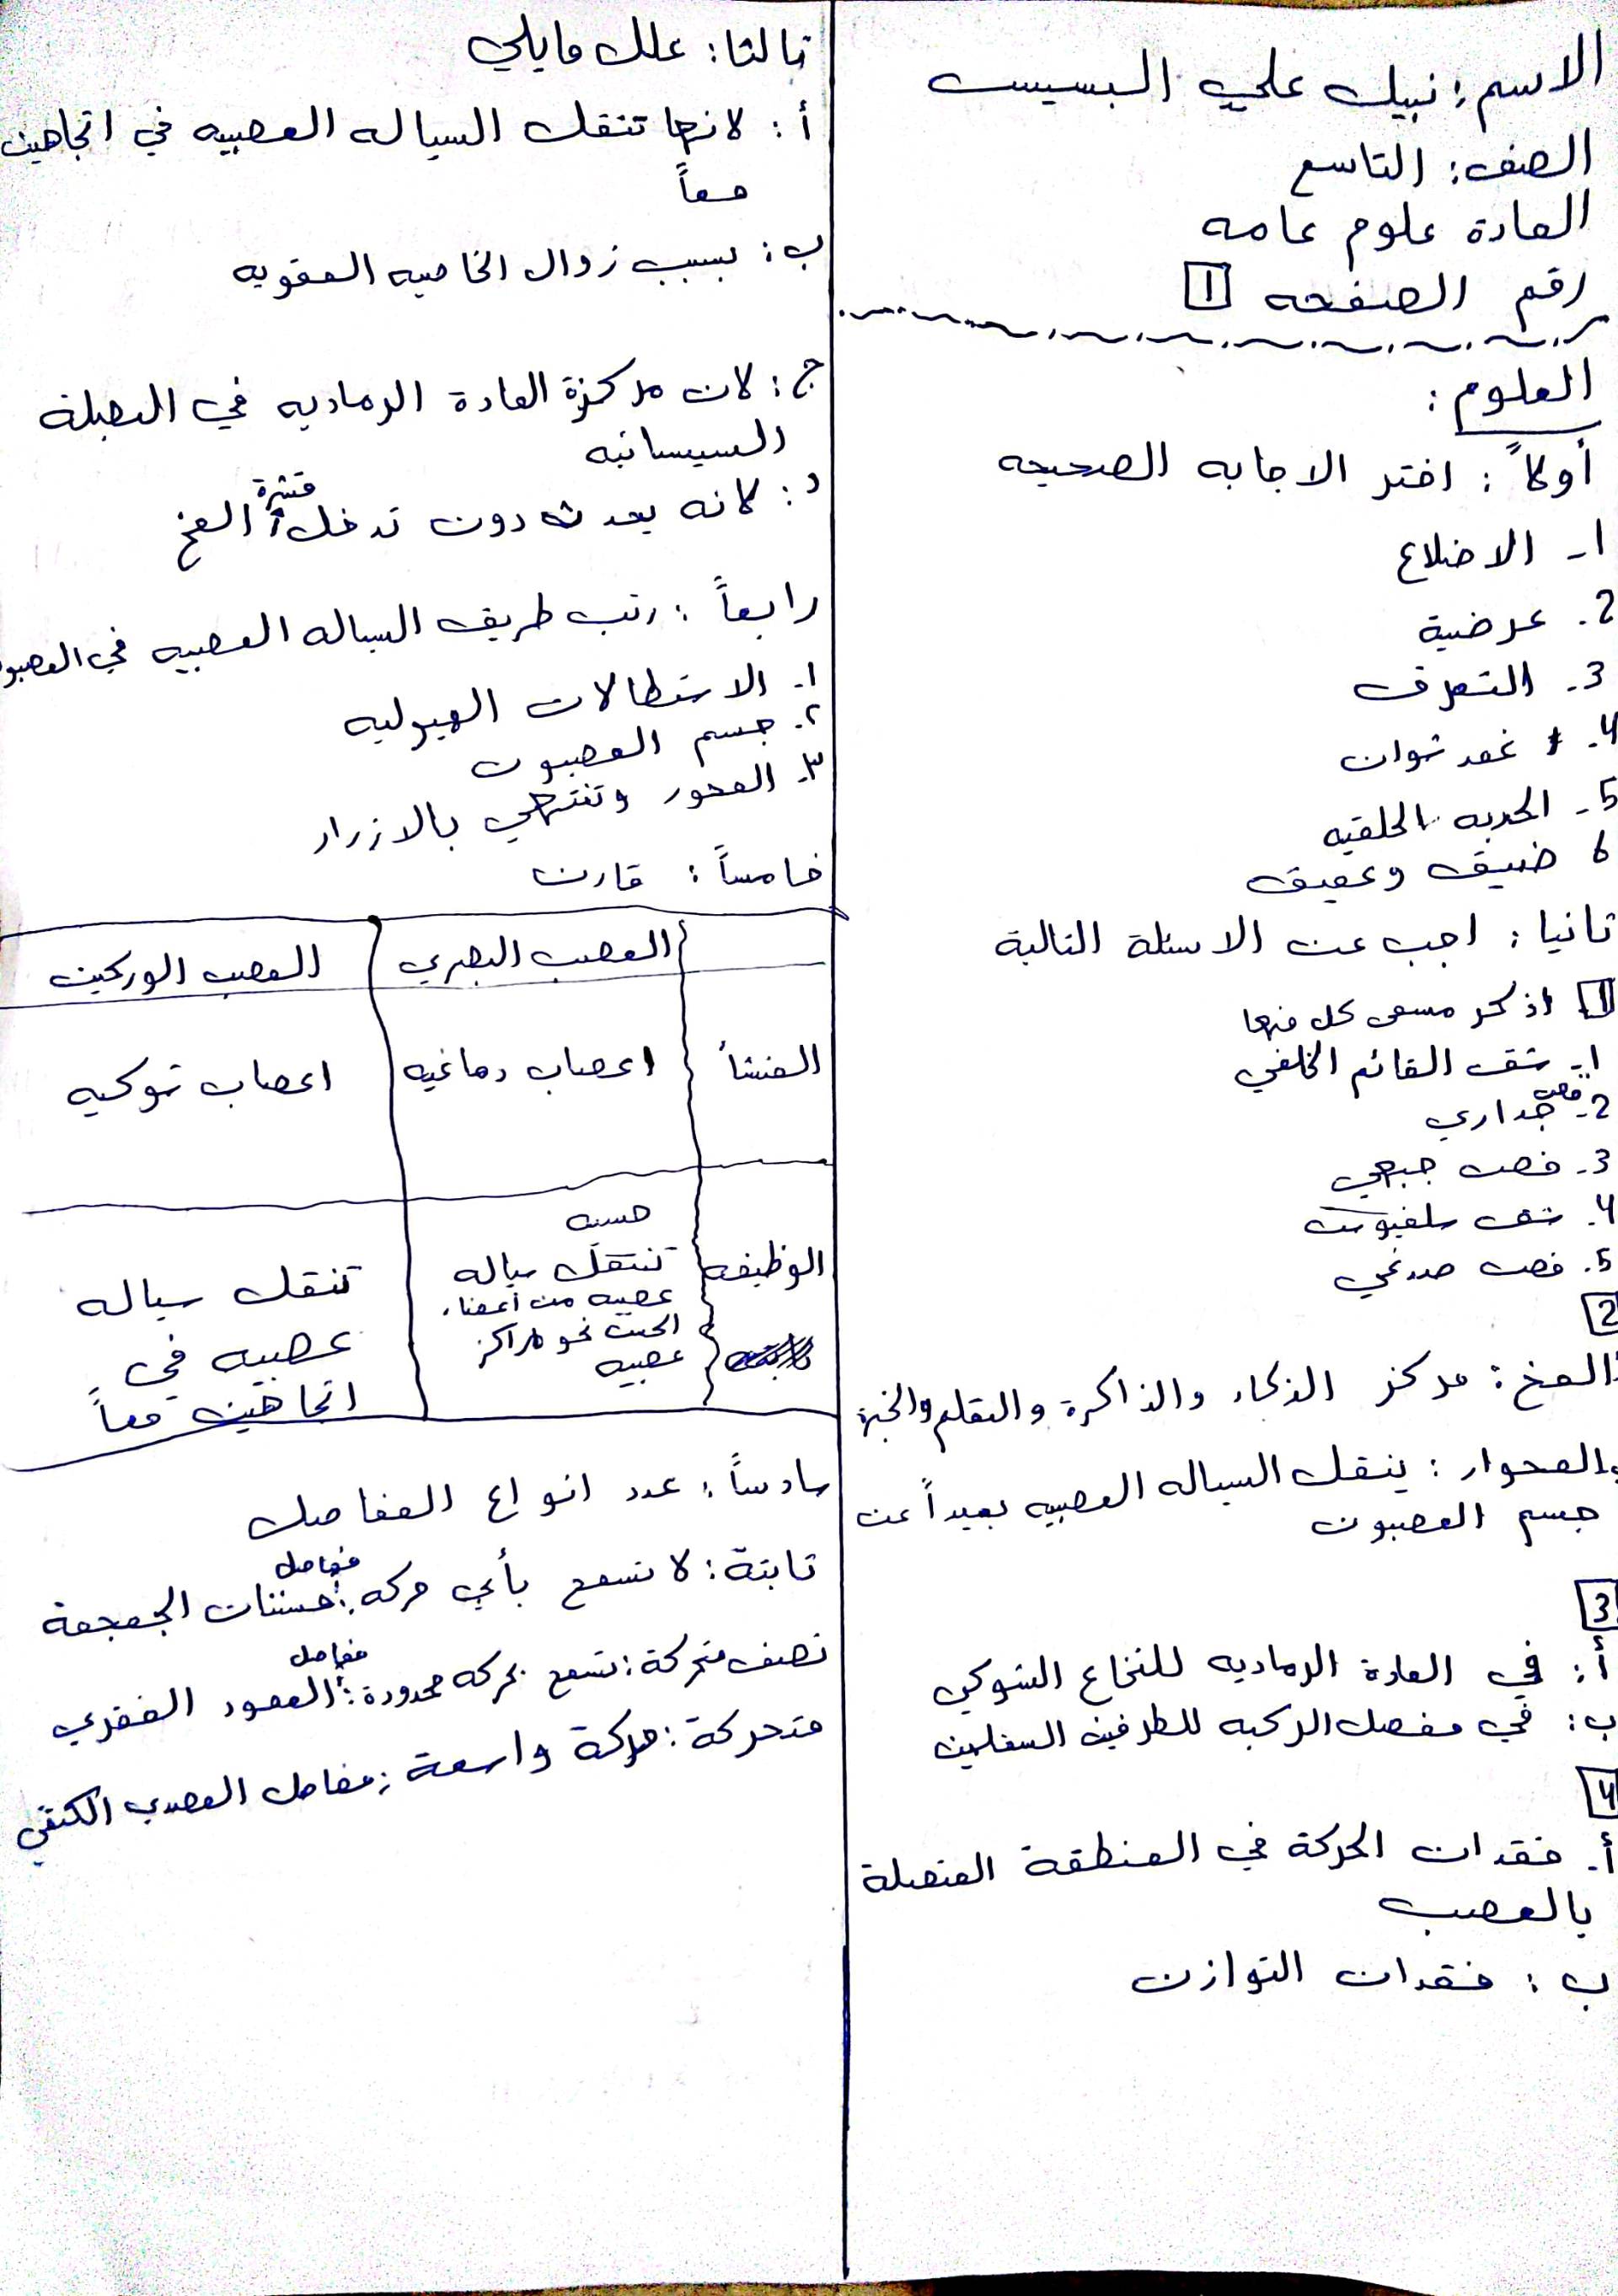 الاسم: نبيل علي البسيس
الصف: التاسع
المادة علوم عامه
رقم الصفحه 1
العلوم:
أولاً: اختر الاجابه الصحيحه
1- الاضلاع
2. عرضية
3. التعرف
4. غمد شوان
5- الحدبه الحلقيه
6 ضيق وعميق
ثانيا: اجب عن الاسئلة التالية
1 اذكر مسمى كل منها
1- شق القائم الخلفي
2- فص جداري
3- فص جبهي
4. شق سلفيوس
5. فص صدغي
2
أ المخ: مركز الذكاء والذاكرة والتعلم والخبرة
ب المحوار: ينقل السياله العصبيه بعيداً عن
جسم العصبون
3
أ: في المادة الرماديه للنخاع الشوكي
ب: في مفصل الركبه للطرفين السفليين
4
أ. فقدان الحركة في المنطقة المتصلة
بالعصب
ب: فقدان التوازن
ثالثا: علل مايلي
أ: لانها تنقل السياله العصبيه في اتجاهين
معاً
ب: بسبب زوال الخاصيه العفويه
ج: لان مركزة المادة الرماديه في البصلة
السيسائيه
د: لانه يحدث دون تدخل قشرة المخ
رابعاً: رتب طريق السياله العصبيه في العصبون
1- الاستطالات الهيوليه
٢- جسم العصبون
٣- المحور وتنتهي بالازرار
خامساً: قارن
العصب البصري العصب الوركين
المنشأ اعصاب دماغيه اعصاب شوكيه
الوظيفه حسيه
تنتقل سياله
عصبيه من أعضاء
الحس نحو مراكز
عصبيه
تنقل سياله
عصبيه في
اتجاهين معاً
سادساً: عدد انواع المفاصل
ثابتة: لا تسمح بأي حركه: مفاصل مسننات الجمجمة
نصف متحركة: تسمح بحركه محدودة: مفاصل العمود الفقري
متحركة: حركة واسعة: مفاصل العضدي الكتفي